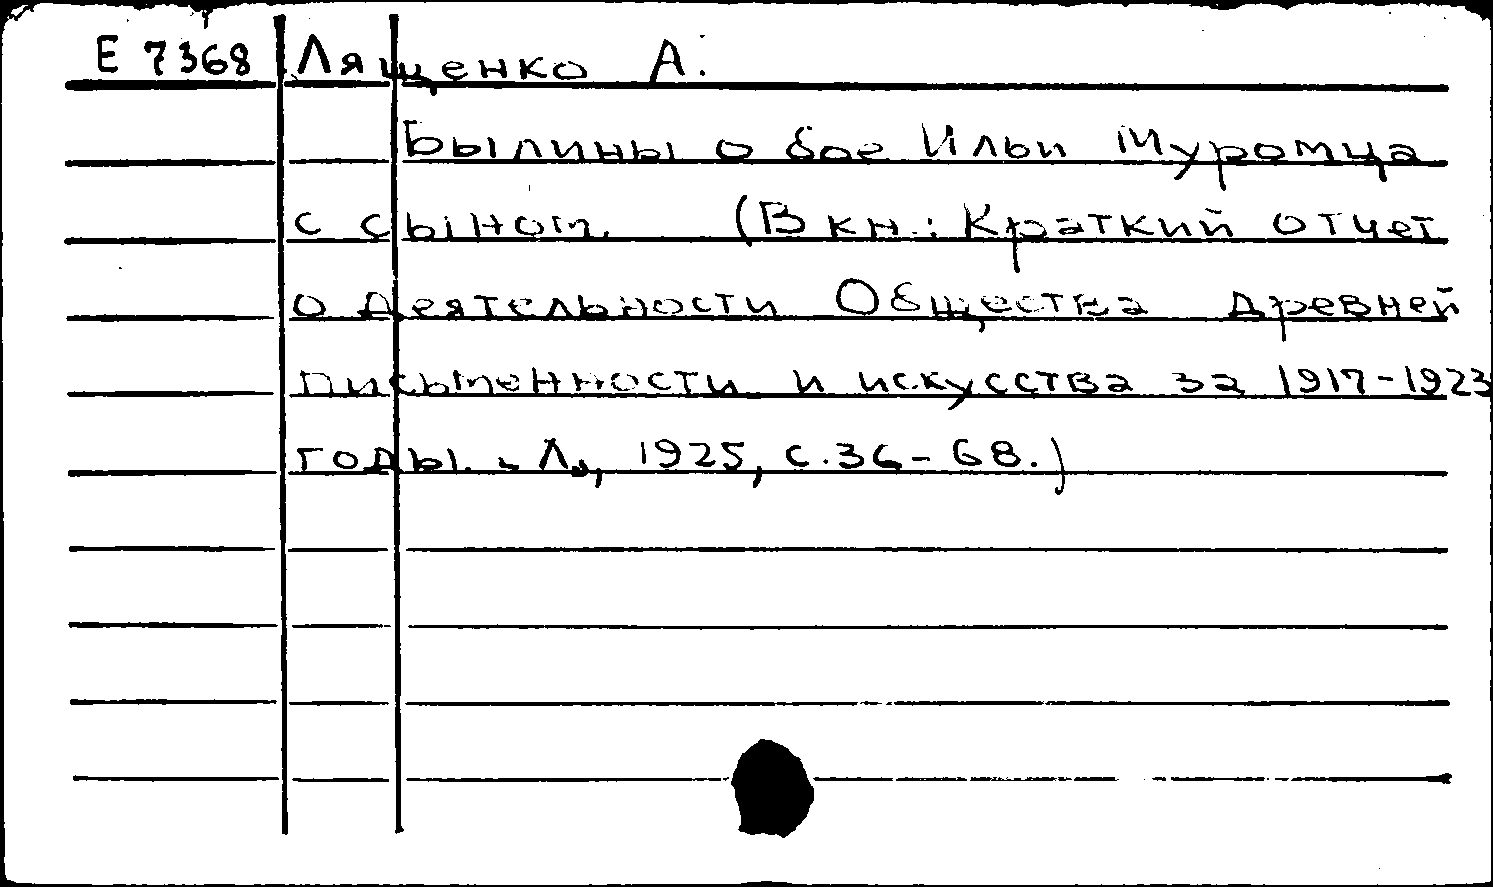 Е 7368 Лященко А.
Былины о бое Ильи Муромца
с сыном. (В кн.: Краткий отчет
о деятельности Общества древней
письменности и искусства за 1917-1923
годы. - Л., 1925, с.36-68.)